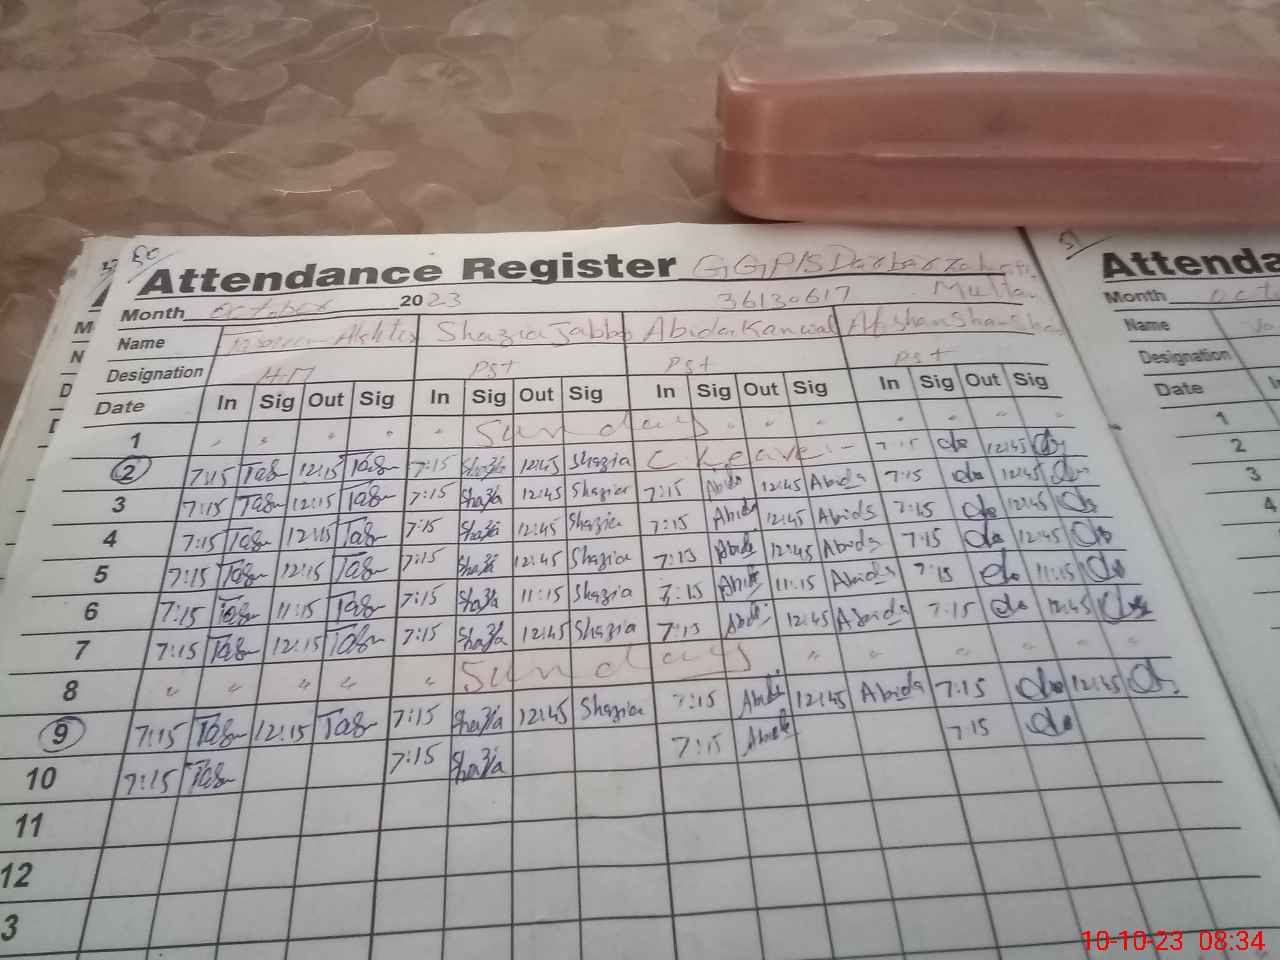 50
Attendance Register GGP/S Darbar
Month October 2023 36130617 Multan
Name Akhter Shazia Jabbar Abida Kanwal Afshan
Designation H.M Pst Pst Pst
Date In Sig Out Sig In Sig Out Sig In Sig Out Sig In Sig Out Sig
1 " " " " " Sunday " " " " " "
2 7:15 Tas 12:15 Tas 7:15 Shazia 12:45 Shazia C. Leave - 7:15 do 12:45 do
3 7:15 Tas 12:15 Tas 7:15 Shazia 12:45 Shazia 7:15 Abida 12:45 Abida 7:15 do 12:45 do
4 7:15 Tas 12:15 Tas 7:15 Shazia 12:45 Shazia 7:15 Abida 12:45 Abida 7:15 do 12:45 do
5 7:15 Tas 12:15 Tas 7:15 Shazia 12:45 Shazia 7:15 Abida 12:45 Abida 7:15 do 12:45 do
6 7:15 Tas 11:15 Tas 7:15 Shazia 11:15 Shazia 7:15 Abida 11:15 Abida 7:15 do 11:15 do
7 7:15 Tas 12:15 Tas 7:15 Shazia 12:45 Shazia 7:15 Abida 12:45 Abida 7:15 do 12:45 do
8 " " " " " Sunday " " " " "
9 7:15 Tas 12:15 Tas 7:15 Shazia 12:45 Shazia 7:15 Abida 12:45 Abida 7:15 do 12:45 do
10 7:15 Tas 7:15 Shazia 7:15 Abida 7:15 do
11
12
3
51
Attenda
Month Octo
Name
Designation
Date
1
2
3
4
10-10-23 08:34